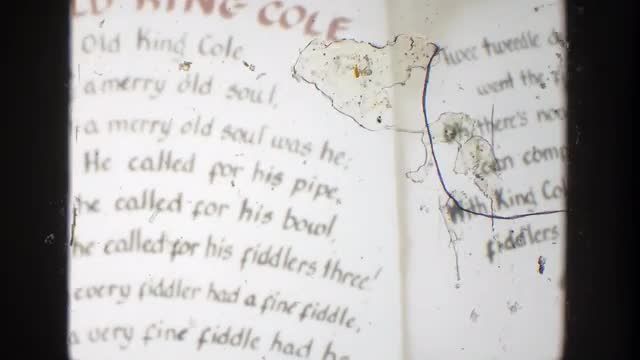 LD KING COLE
Old King Cole
a merry old soul,
a merry old soul was he;
He called for his pipe,
he called for his bowl,
he called for his fiddlers three!
every fiddler had a fine fiddle,
a very fine fiddle had he
Twee tweedle
went the
there's
can comp
With King Col
fiddlers